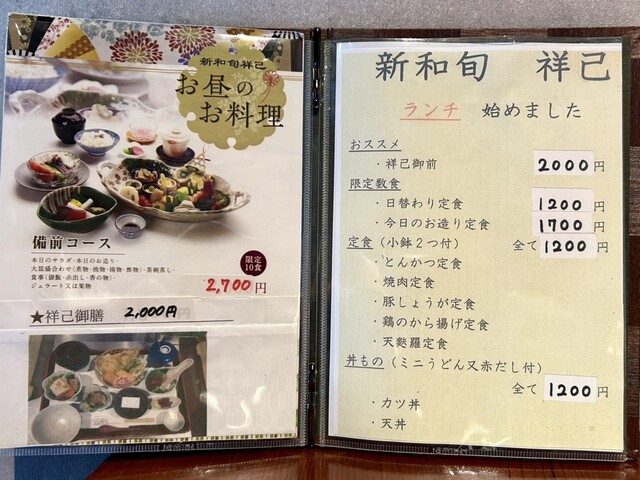 新和旬祥己
お昼の
お料理
備前コース
本日のサラダ・本日のお造り・
大皿盛合わせ(煮物・焼物・揚物・酢物)・茶碗蒸し・
食事(御飯・赤出し・香の物)・
ジェラート又は果物
限定
10食
2,700円
★祥己御膳 2,000円
新和旬 祥己
ランチ 始めました
おススメ
・祥己御前 2000円
限定数食
・日替わり定食 1200円
・今日のお造り定食 1700円
定食(小鉢2つ付) 全て1200円
・とんかつ定食
・焼肉定食
・豚しょうが定食
・鶏のから揚げ定食
・天麩羅定食
丼もの(ミニうどん又赤だし付)
全て 1200円
・カツ丼
・天丼